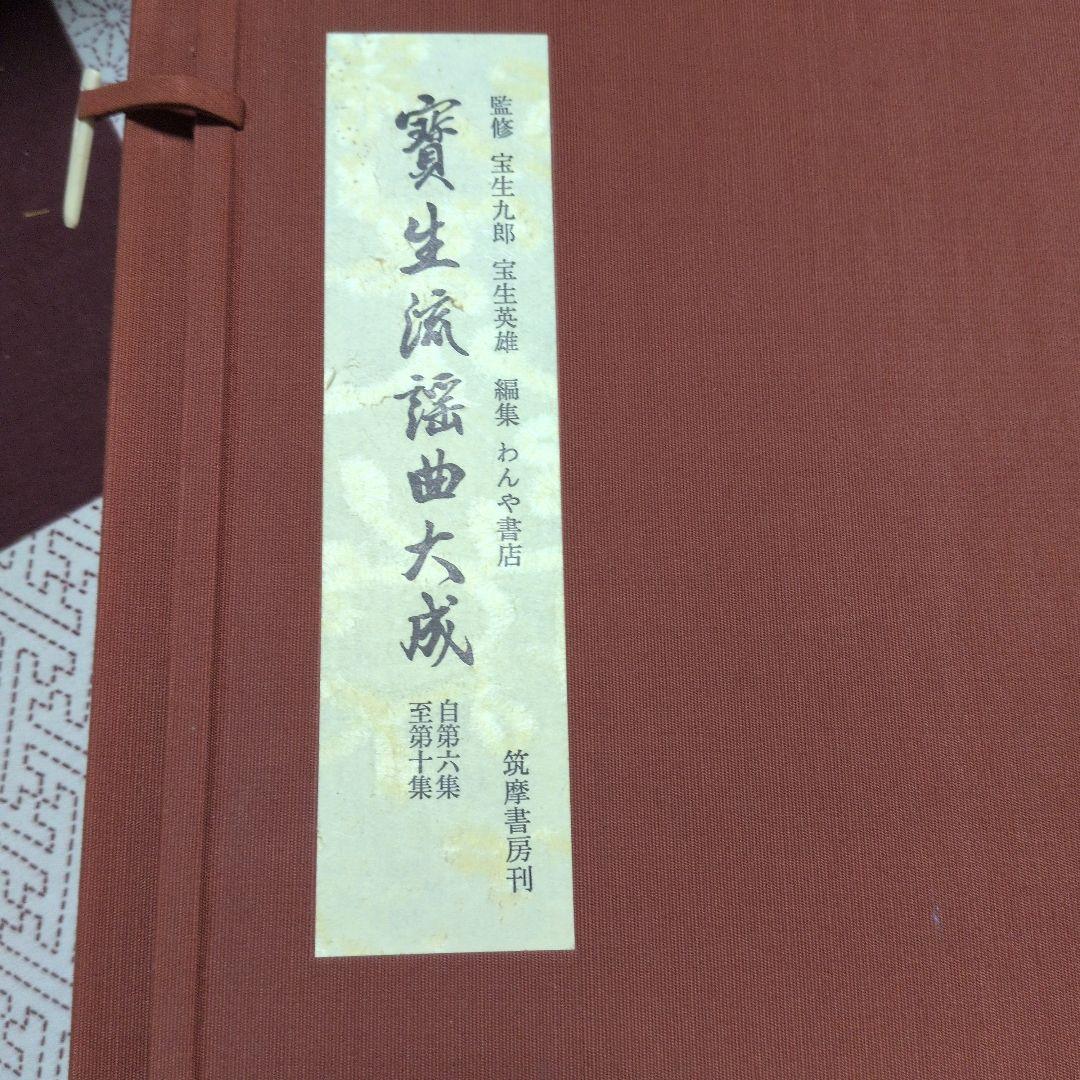 監修 宝生九郎 宝生英雄 編集 わんや書店
寳生流謡曲大成
自第六集
至第十集
筑摩書房刊